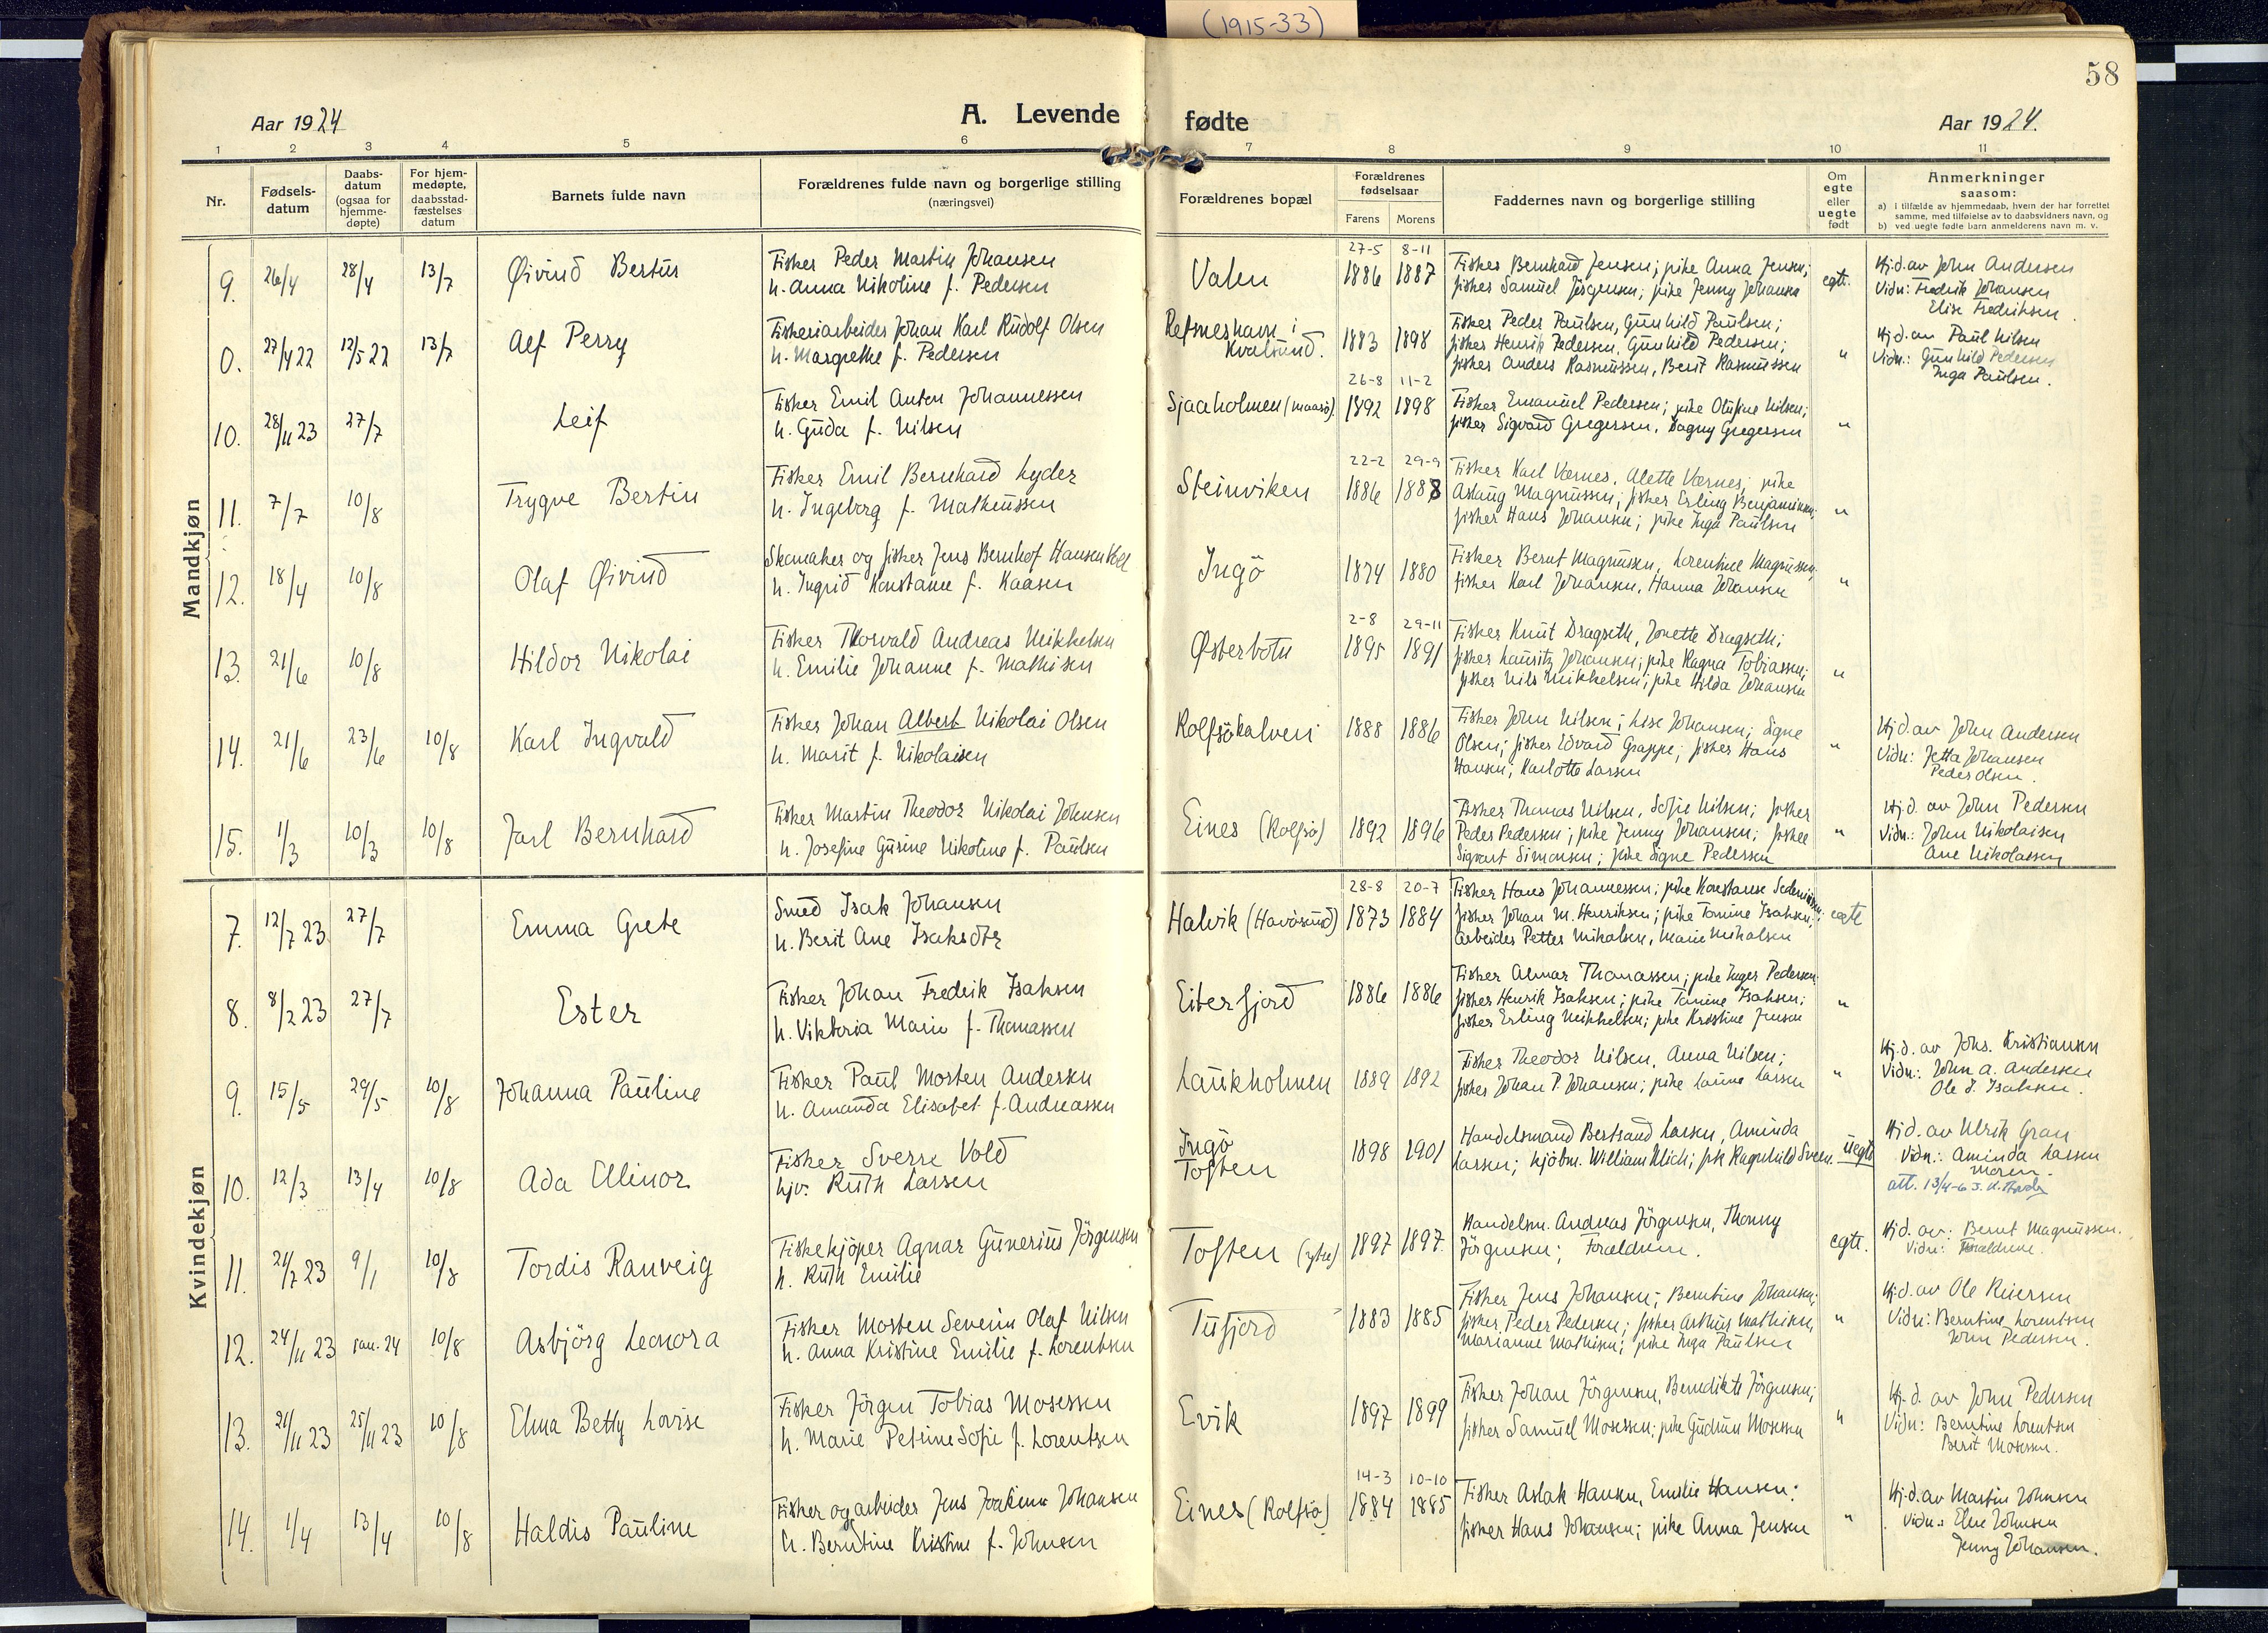 (1915-33)
58
Aar 1924
A. Levende
fødte
Aar 1924.
1 2 3 4 5 6 7 8 9 10 11
Nr.
Fødsels-
datum
Daabs-
datum
(ogsaa for
hjemme-
døpte)
For hjem-
medøpte,
daabsstad-
fæstelses
datum
Barnets fulde navn
Forældrenes fulde navn og borgerlige stilling
(næringsvei)
Forældrenes bopæl
Forældrenes
fødselsaar
Farens Morens
Faddernes navn og borgerlige stilling
Om
egte
eller
uegte
født
Anmerkninger
saasom:
a) i tilfælde av hjemmedaab, hvem der har forrettet
samme, med tilføielse av to daabsvidners navn, og
b) ved uegte fødte barn anmelderens navn m. v.
Mandkjøn
9. 26/4 28/4 13/7 Øivind Bertus
Fisker Peder Martin Johansen
h. Anna Nikoline f. Pedersen
Valen
27-5 8-11
1886 1887
Fisker Bernhard Jensen; pike Anna Jensen;
fisker Samuel Jørgensen; pike Jenny Johansen
egte.
Hj.d. av John Andersen
Vidn: Fredrik Johansen
Elise Fredriksen.
0. 27/4 22 12/5 22 13/7 Alf Perry
Fiskeriarbeider Johan Karl Rudolf Olsen
h. Margrethe f. Pedersen
Refsneshavn i
Kvalsund.
1883 1898
Fisker Peder Paulsen, Gunhild Paulsen;
fisker Henrik Pedersen, Gunhild Pedersen;
fisker Anders Rasmussen, Berit Rasmussen
"
Hj.d. av Paul Nilsen
Vidn.: Gunhild Pedersen
Inga Paulsen.
10. 28/11 23 27/7 Leif
Fisker Emil Anton Johannessen
h. Guda f. Nilsen
Sjaaholmen (Maasö)
26-8 11-2
1892 1898
Fisker Emanuel Pedersen; pike Olufine Nilsen;
fisker Sigvard Gregersen, Dagny Gregersen
"
11. 7/7 10/8 Trygve Bertin
Fisker Emil Bernhard Lyder
h. Ingeborg f. Matheussen
Steinviken
22-2 29-9
1886 1888
Fisker Karl Værnes, Alette Værnes; pike
Aslaug Magnussen; fisker Erling Benjaminsen;
fisker Hans Johansen; pike Inga Paulsen
"
12. 18/4 10/8 Olaf Øivind
Skomaker og fisker Jens Bernhof Hansen
h. Ingrid Konstanse f. Kaasen
Ingö
1874 1880
Fisker Bernt Magnussen, Lorentine Magnussen;
fisker Karl Johansen, Hanna Johansen
"
13. 21/6 10/8 Hildor Nikolai
Fisker Thorvald Andreas Mikkelsen
h. Emilie Johanne f. Mathisen
Østerbotn
2-8 29-11
1895 1891
Fisker Knut Dragseth, Jonette Dragseth;
fisker Lauritz Johansen; pike Ragna Tobiassen;
fisker Nils Mikkelsen; pike Hilda Johansen
"
14. 21/6 23/6 10/8 Karl Ingvald
Fisker Johan Albert Nikolai Olsen
h. Marit f. Nikolaisen
Rolfsökalven
1888 1886
Fisker John Nilsen; Lise Johansen; Signe
Olsen; fisker Edvard Grappe; fisker Hans
Hansen; Karlotte Larsen
"
Hj.d. av John Andersen
Vidn: Jetta Johansen
Peder Olsen.
15. 1/3 10/3 10/8 Jarl Bernhard
Fisker Martin Theodor Nikolai Johnsen
h. Josefine Gurine Nikoline f. Paulsen
Eines (Rolfsö)
1892 1896
Fisker Thomas Nilsen, Sofie Nilsen; fisker
Peder Pedersen; pike Jenny Johansen; fisker
Sigvart Simonsen; pike Signe Pedersen
"
Hj.d. av John Pedersen
Vidn.: John Nikolaisen
Ane Nikolassen
Kvindekjøn
7. 12/7 23 27/7 Emma Grete
Smed Isak Johansen
h. Berit Ane Isaksdtr
Halvik (Havösund)
28-8 20-7
1873 1884
Fisker Hans Johannessen; pike Konstanse
fisker Johan M. Henriksen; pike Tomine Isaksen;
Arbeider Petter Mikalsen, Marie Mikalsen
egte
8. 8/2 23 27/7 Ester
Fisker Johan Fredrik Isaksen
h. Viktoria Marie f. Thomassen
Eiterfjord
1886 1886
Fisker Almar Thomassen; pike Inger Pedersen;
fisker Henrik Isaksen; pike Tomine Isaksen;
fisker Erling Mikkelsen; pike Kristine Jensen
"
9. 15/5 29/5 10/8 Johanna Pauline
Fisker Paul Morten Andersen
h. Amanda Elisabet f. Andreassen
Laukholmen
1889 1892
Fisker Theodor Nilsen, Anna Nilsen;
fisker Johan P. Johansen; pike Laura Larsen
"
Hj.d. av Johs. Kristiansen
Vidn.: John A. Andersen
Ole J. Isaksen.
10. 12/3 13/4 10/8 Ada Ellinor
Fisker Sverre Vold
hjv. Ruth Larsen
Ingö
Toften
1898 1901
Handelsmand Bertrand Larsen, Aminda
Larsen; kjöbm. William Klich; pk Ragnhild Sveen.
uegte
Hj.d. av Ulrik Gran
Vidn.: Aminda Larsen
Moren.
att. 13/4-63.
11. 21/7 23 9/1 10/8 Tordis Ranveig
Fiskekjöper Agnar Gunerius Jörgensen
h. Ruth Emilie
Toften (ytre)
1897 1897
Handelsm. Andreas Jörgensen, Thonny
Jörgensen; Forældrene.
egte.
Hj.d. av: Bernt Magnussen.
Vidn: Forældrene.
12. 24/11 23 jan. 24 10/8 Asbjörg Leonora
Fisker Morten Severin Olaf Nilsen
h. Anna Kristine Emilie f. Lorentsen
Tufjord
1883 1885
Fisker Jens Johansen; Berntine Johansen;
fisker Peder Pedersen; fisker Arthur Mathisen,
Marianne Mathisen; pike Inga Paulsen
"
Hj.d. av Ole Reiersen
Vidn: Berntine Lorentsen
John Pedersen.
13. 21/11 23 25/11 23 10/8 Elna Betty Lovise
Fisker Jörgen Tobias Mosessen
h. Marie Petrine Sofie f. Lorentsen
Evik
1897 1899
Fisker Johan Jörgensen, Benedikte Jörgensen;
fisker Samuel Mosessen; pike Gudrun Mosessen
"
Hj.d. av John Pedersen
Vidn: Berntine Lorentsen
Berit Mosessen.
14. 1/4 13/4 10/8 Haldis Pauline
Fisker og arbeider Jens Joakim Johansen
h. Berntine Kristine f. Johnsen
Eines (Rolfsö)
14-3 10-10
1884 1885
Fisker Aslak Hansen, Emilie Hansen;
fisker Hans Johansen; pike Anna Jensen
"
Hj.d. av Martin Johnsen
Vidn.: Eline Johnsen
Jenny Johansen.